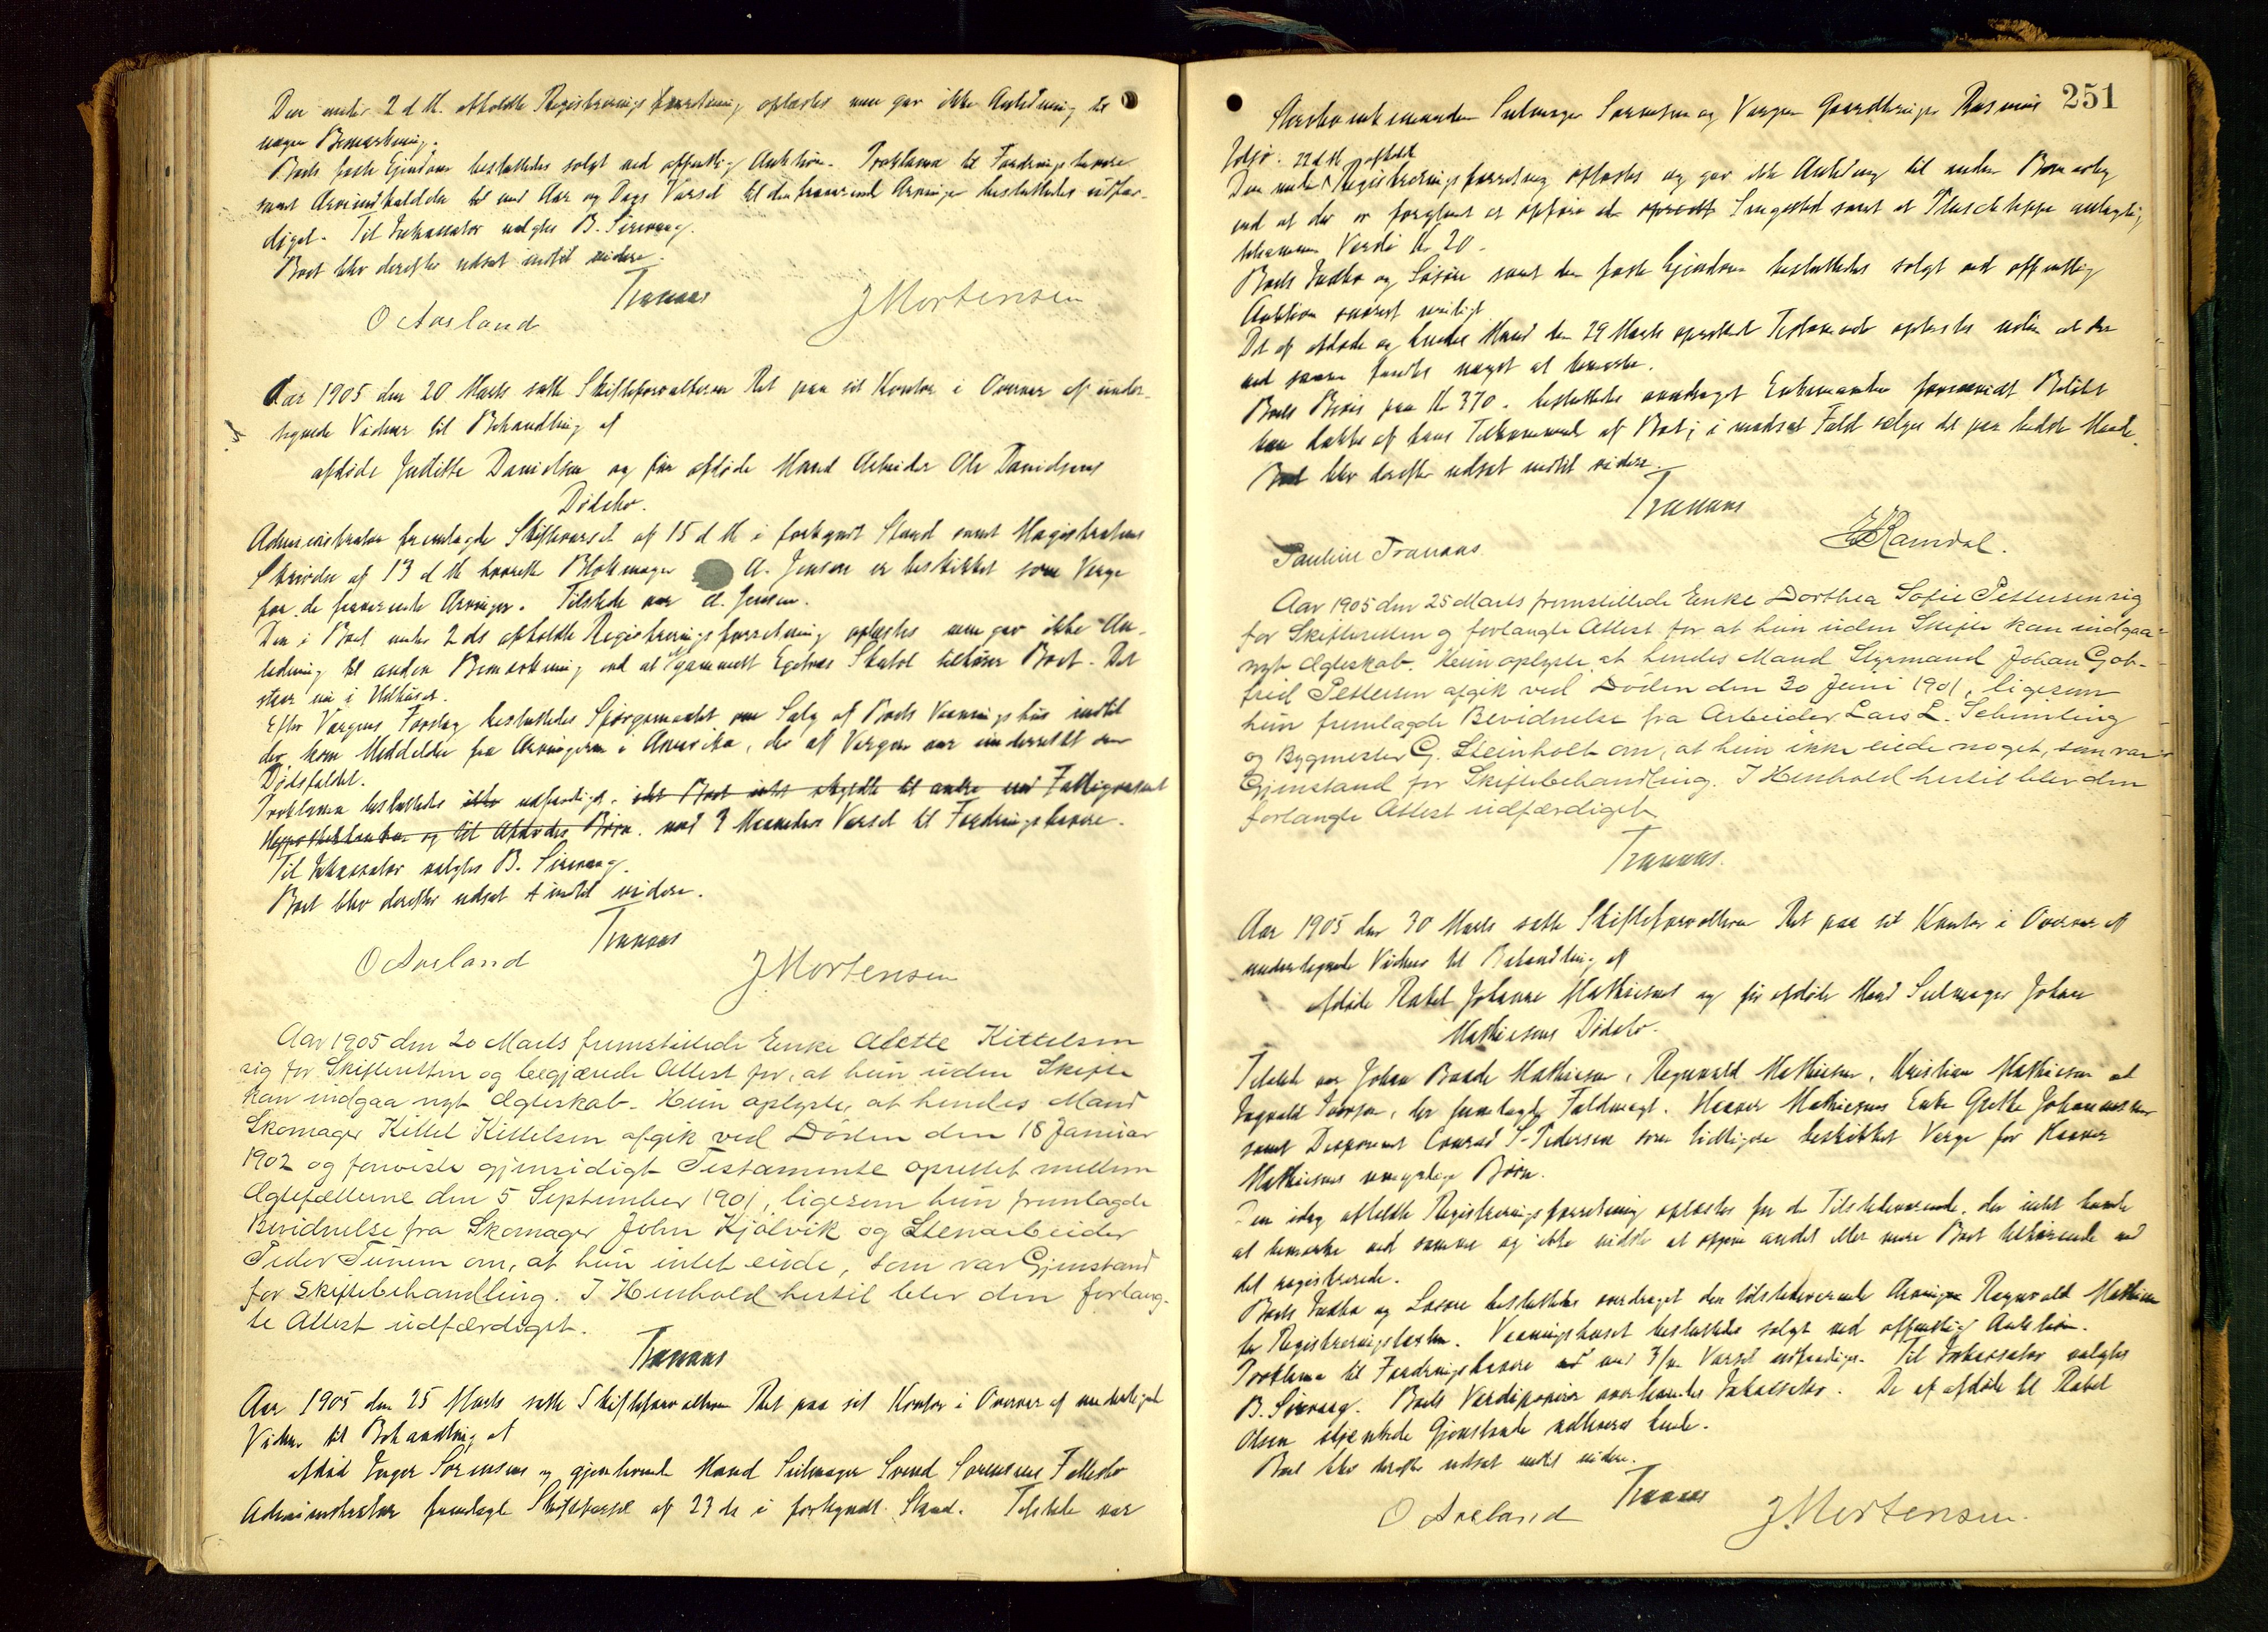 Den under 2 d M. afholdte Registreringsforretning oplæstes men gav ikke Anledning til
nogen Bemærkning.
Boets faste Eiendom besluttedes solgt ved offentlig Auktion. Proklama til Fordringshavere
samt Arveindkaldelse til med Aar og Dags Varsel til de fraværende Arvinger besluttedes udfær-
diget. Til Inkassator valgtes B. Sirevaag.
Boet blev derefter udsat indtil videre.
Tranaas
O Aasland
J Mortensen
Aar 1905 den 20 Marts satte Skifteforvalteren Ret paa sit Kontor i Overvær af under-
tegnede Vidner til Behandling af
afdøde Danielsen og før afdøde Mand Arbeider Ole Danielsens
Dødsbo.
Administrator fremlagde Skiftevarsel af 15 d M i forkyndt Stand samt Magistratens
Skrivelse af 13 d M hvorefter Blokmager A. Jensen er beskikket som Verge
for de fraværende Arvinger. Tilstede var A. Jensen.
Den i Boet under 2 ds afholdte Registreringsforretning oplæstes men gav ikke An-
ledning til anden Bemærkning end at gammelt Egetræs Skatol tilhører Boet. Det
staar nu i Udhuset.
Efter Vergens Forslag besluttedes Spørgsmaalet om Salg af Boets Vaaningshus indtil
der kom Meddelelse fra Arvingerne i Amerika, der af Vergen var underrettet om
Dødsfaldet.
Proklama besluttedes ikke udfærdiget, idet Boet intet skyldte til andre end Fattigvæsenet
Hypothekbanken og til Afdødes Børn. med 3 Maaneders Varsel til Fordringshavere.
Til Inkassator valgtes B. Sirevaag.
Boet blev derefter udsat indtil videre.
Tranaas
O Aasland
J Mortensen
Aar 1905 den 20 Marts fremstillede Enke Alette Kittelsen
sig for Skifteretten og begjærede Attest for, at hun uden Skifte
kan indgaa nyt Ægteskab. Hun oplyste, at hendes Mand
Skomager Kittel Kittelsen afgik ved Døden den 18 Januar
1902 og foreviste gjensidigt Testamente oprettet mellem
Ægtefællerne den 5 September 1901, ligesom hun fremlagde
Bevidnelse fra Skomager John Kjølvik og Stenarbeider
Peder Tunem om, at hun intet eiede, som var Gjenstand
for Skiftebehandling. I Henhold hertil blev den forlang-
te Attest udfærdiget.
Tranaas
Aar 1905 den 25 Marts satte Skifteforvalteren Ret paa sit Kontor i Overvær af undertegnede
Vidner til Behandling af
afdød Inger Sørensens og gjenlevende Mand Seilmager Svend Sørensens Fællesbo
Administrator fremlagde Skiftevarsel af 23 ds i forkyndt Stand. Tilstede var
251
Enkemanden Seilmager Sørensen og Vergen Gaardbruger Rasmus
22 d M afholdte
Den under Registreringsforretning oplæstes og gav ikke Anledning til anden Bemærkning
end at der er forglemt at opføre et opredt Sengested samt et Plüschteppe antagelig
tilsammen Verdi Kr 20.
Boets Indbo og Løsøre samt den faste Eiendom besluttedes solgt ved offentlig
Auktion snarest muligt
Det af afdøde og hendes Mand den 29 Marts oprettede Testamente oplæstes uden at der
ved samme fandtes noget at bemærke.
Boets Bevis paa Kr 370. besluttedes overdraget Enkemanden forsaavidt Beløbet
kan dækkes af hans Tilkommende af Boet; i modsat Fald sælges det paa bedste Maade.
Boet blev derefter udsat indtil videre.
Tranaas
Pauline Tranaas.
Ramdal.
Aar 1905 den 25 Marts fremstillede Enke Dorthea Sofie Pettersen sig
for Skifteretten og forlangte Attest for at hun uden Skifte kan indgaa
nyt Ægteskab. Hun oplyste, at hendes Mand Styrmand Johan Got-
fried Pettersen afgik ved Døden den 30 Juni 1901, ligesom
hun fremlagde Bevidnelse fra Arbeider Lars L. Schmiling
og Bygmester G. Steinholt om, at hun ikke eiede noget, som var
Gjenstand for Skiftebehandling. I Henhold hertil blev den
forlangte Attest udfærdiget.
Tranaas.
Aar 1905 den 30 Marts satte Skifteforvalteren Ret paa sit Kontor i Overvær af
undertegnede Vidner til Behandling af
afdøde Rakel Johanne Mathiesens og før afdøde Mand Seilmager Johan
Mathiesens Dødsbo.
Tilstede var Johan Baade Mathiesen, Regnvald Mathiesen, Kristian Mathiesen og
Ingvald Iversen, der fremlagde Fuldmagt. Haaver Mathiesens Enke Grethe Johannessen
samt Disponent Conrad S. Pedersen som tidligere beskikket Verge for Haaver
Mathiesens umyndige Børn.
Den idag afholdte Registreringsforretning oplæstes for de Tilstedeværende, der intet havde
at bemærke ved samme og ikke vidste at opgive andet eller mere Boet tilhørende end
det registrerede.
Boets Indbo og Løsøre besluttedes overdraget den tilstedeværende Arving Regnvald Mathiesen
for Registreringstaxten. Vaaningshuset besluttedes solgt ved offentlig Auktion.
Proklama til Fordringshavere med 3/m Varsel udfærdiges. Til Inkassator valgtes
B. Sirevaag. Boets Værdipapirer overleveredes Inkassator. De af afdøde til Rakel
Olsen skjænkede Gjenstande udleveres hende.
Boet blev derefter udsat indtil videre.
Tranaas
O Aasland
J. Mortensen.